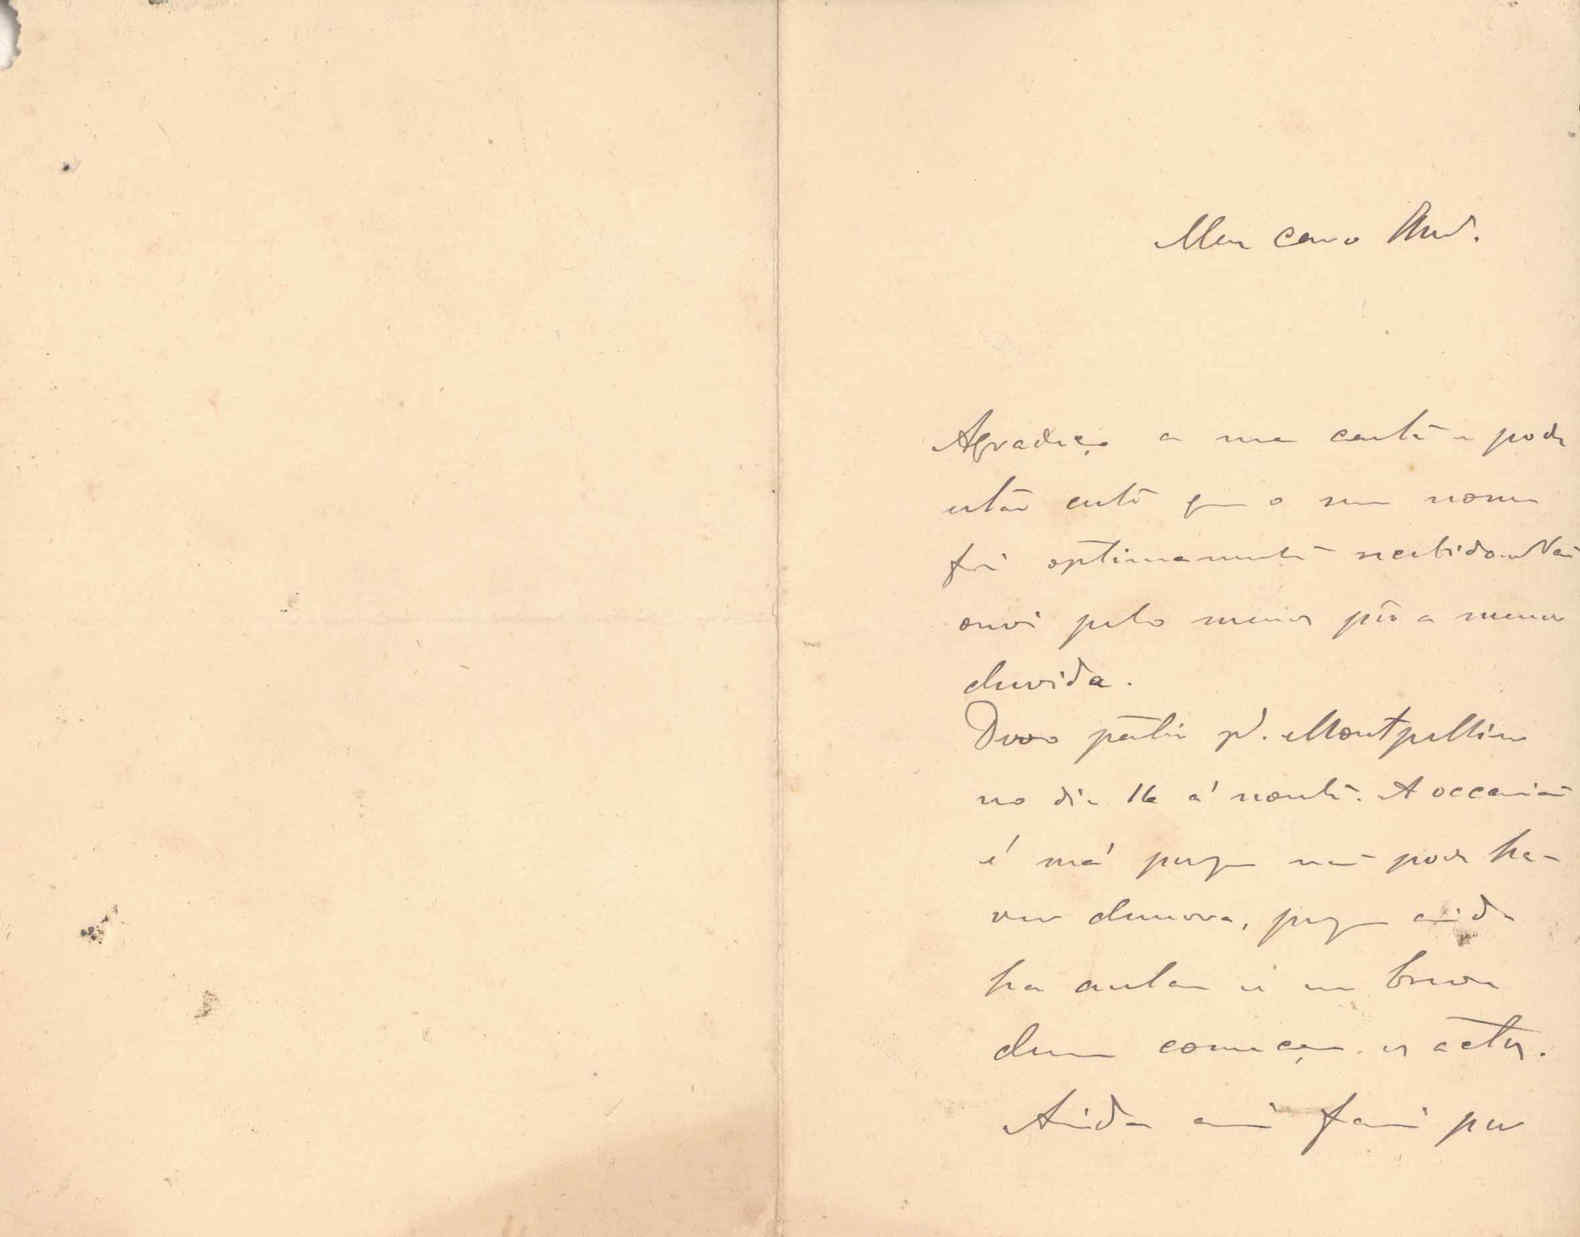 Meu caro Am.º
Agradeço a sua carta e pode
estar certo que o seu nome
foi optimamente recebido. Não
ouvi pelo menos pôr a menor
duvida.
Devo partir p.ª Montpellier
no dia 16 á noute. A occasião
é má porque não pode ha-
ver demora, porque ainda
ha aulas e em breve
devem começar os actos.
Ainda assim farei por